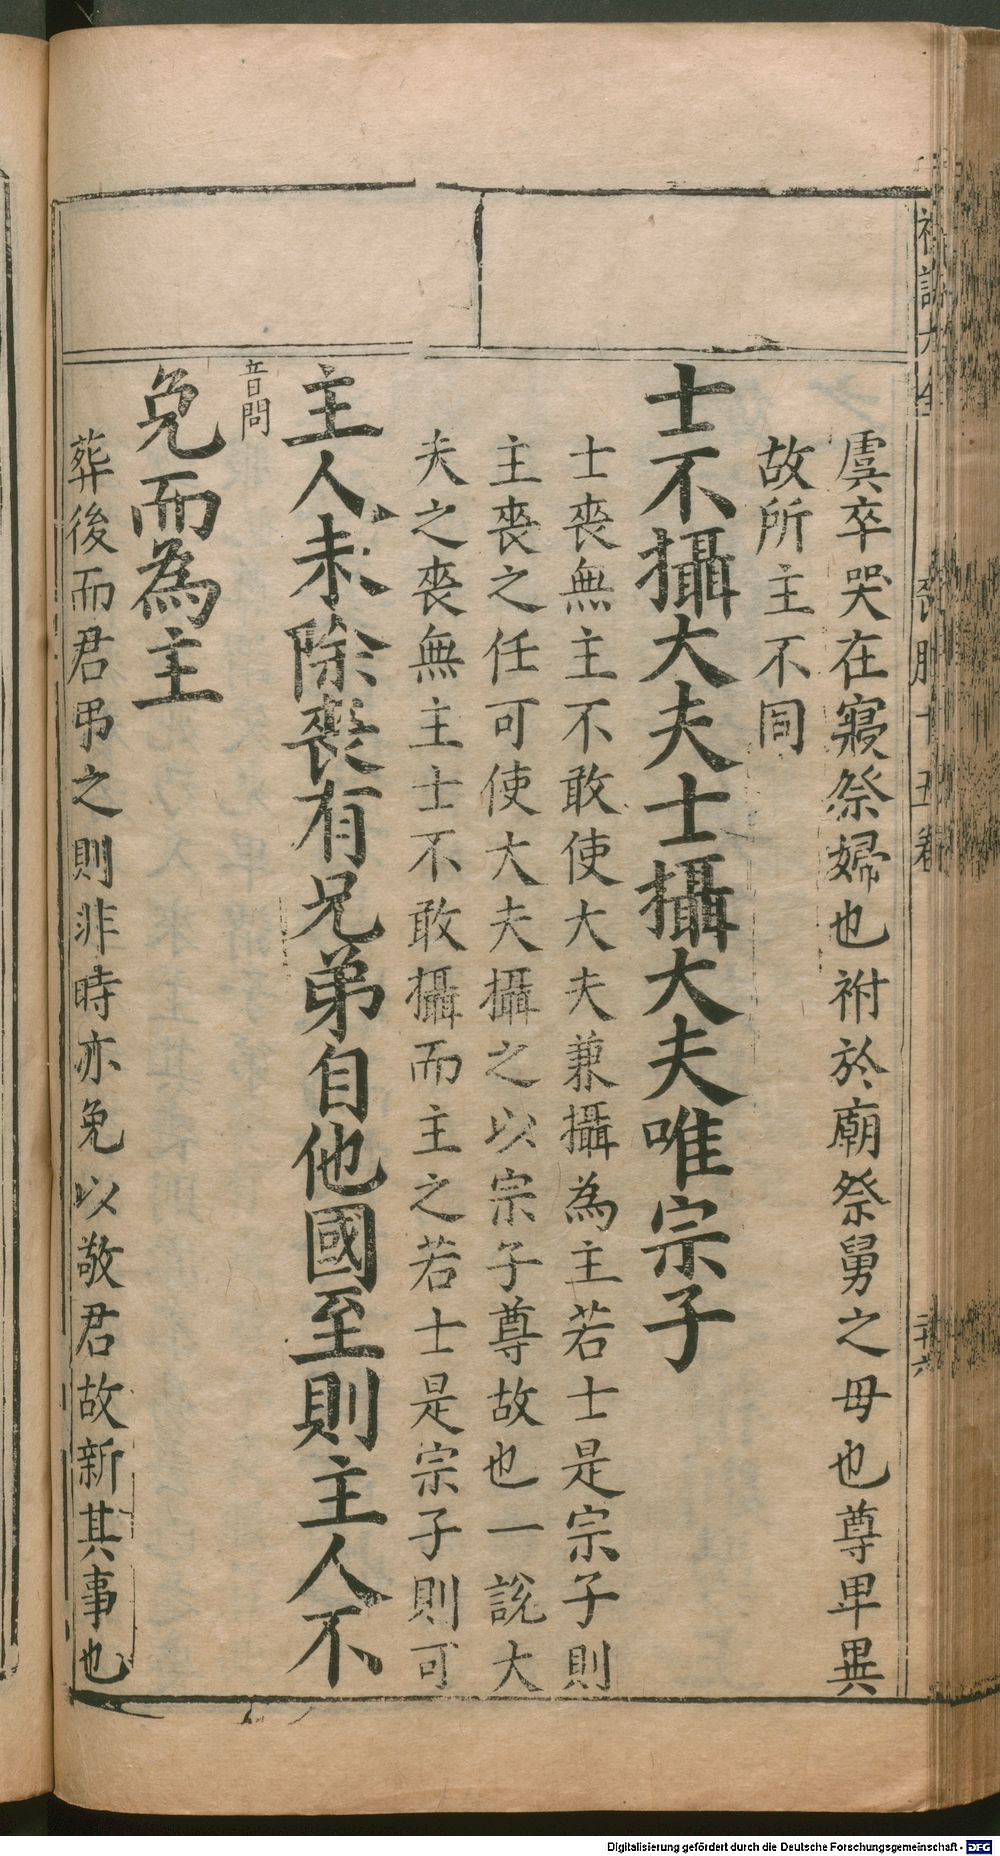 虞卒哭在寢祭婦也祔於廟祭舅之母也尊卑異
故所主不同
士不攝大夫士攝大夫唯宗子
士喪無主不敢使大夫兼攝為主若士是宗子則
主喪之任可使大夫攝之以宗子尊故也一說大
夫之喪無主士不敢攝而主之若士是宗子則可
主人未除喪有兄弟自他國至則主人不
音問
免而為主
葬後而君弔之則非時亦免以敬君故新其事也
喪服十五卷
二十六
Digitalisierung gefördert durch die Deutsche Forschungsgemeinschaft - DFG